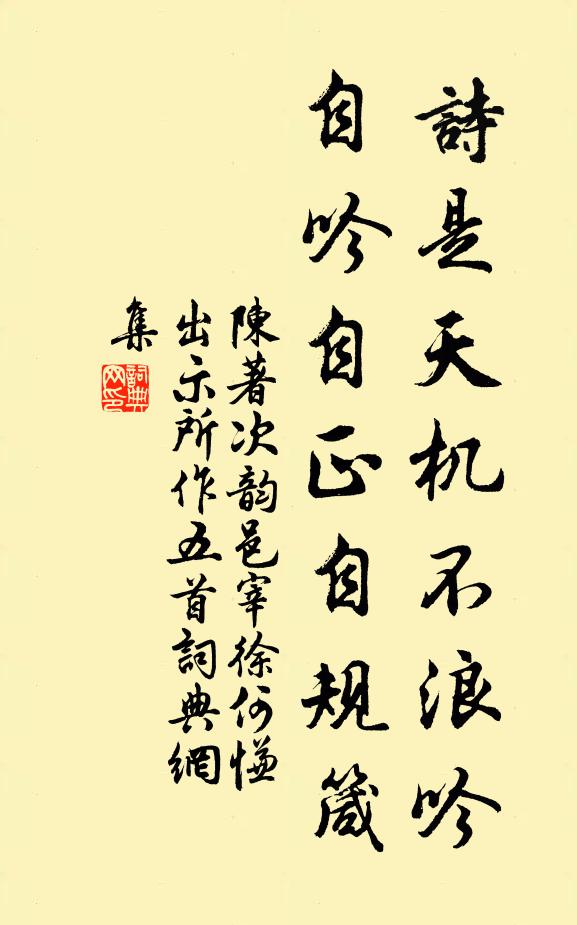 詩是天机不浪吟
自吟自正自規箴
陳著次韵邑宰徐何慊
出示所作五首詞典網
集
詞典
网印